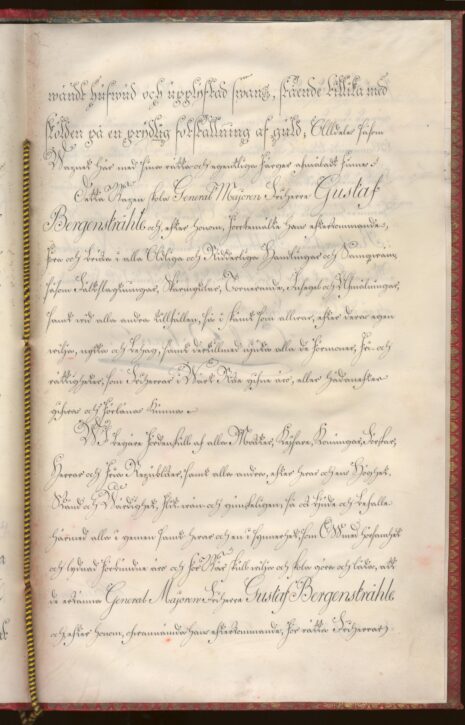 wändt hufwud och upplyftad swans, stående tillika med
skölden på en prydlig fotställning af guld; Alldeles såsom
Wapnet här med sina rätta och egenteliga färgor afmåladt finnes.
Detta Wapen skola General Majoren Friherre Gustaf
Bergenstråhle och, efter honom, förbemälte Hans efterkommande,
föra och bruka i alla Adeliga och Ridderliga Handlingar och
såsom Fältslagtningar, Stormningar, Tornerande, Insegel och Målningar,
samt wid alla andra tillfällen, så i som allwar, efter deras egen
wilja, nytta och behag, samt dessutom njuta alla de förmoner, fri- och
rättigheter, som Friherrar i Wårt Rike gifne äro, eller hädanefter
gifwas och förlänas kunna.
Wi begäre fördenskull af alla Magter, Keysare, Konungar, Förstar,
Herrar och Fria Republiker, samt alla andra, efter hwars och ens Höghet,
Stånd och Wärdighet, samt gunsteligen, så ock bjude och befalle
härmed alla i gemen samt hwar och en i synnerhet, som Oss med hörsamhet
och lydnad förbundne äro och för Wår skull wilja och skola göra och låta, att
de erkänna General Majoren Friherre Gustaf Bergenstråhle
och, efter honom, ofwannämde Hans efterkommande, för rätta Friherrar